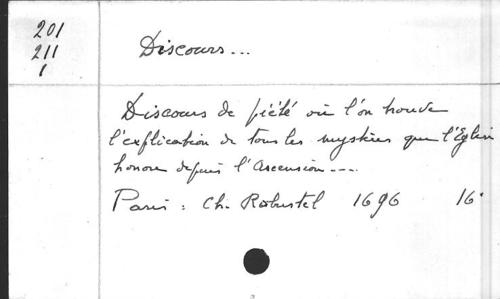 201
211
1
Discours...
Discours de piété où l'on trouve
l'explication de tous les mystères que l'Eglise
honore depuis l'Ascension----
Paris : Ch. Robustel 1696 16°